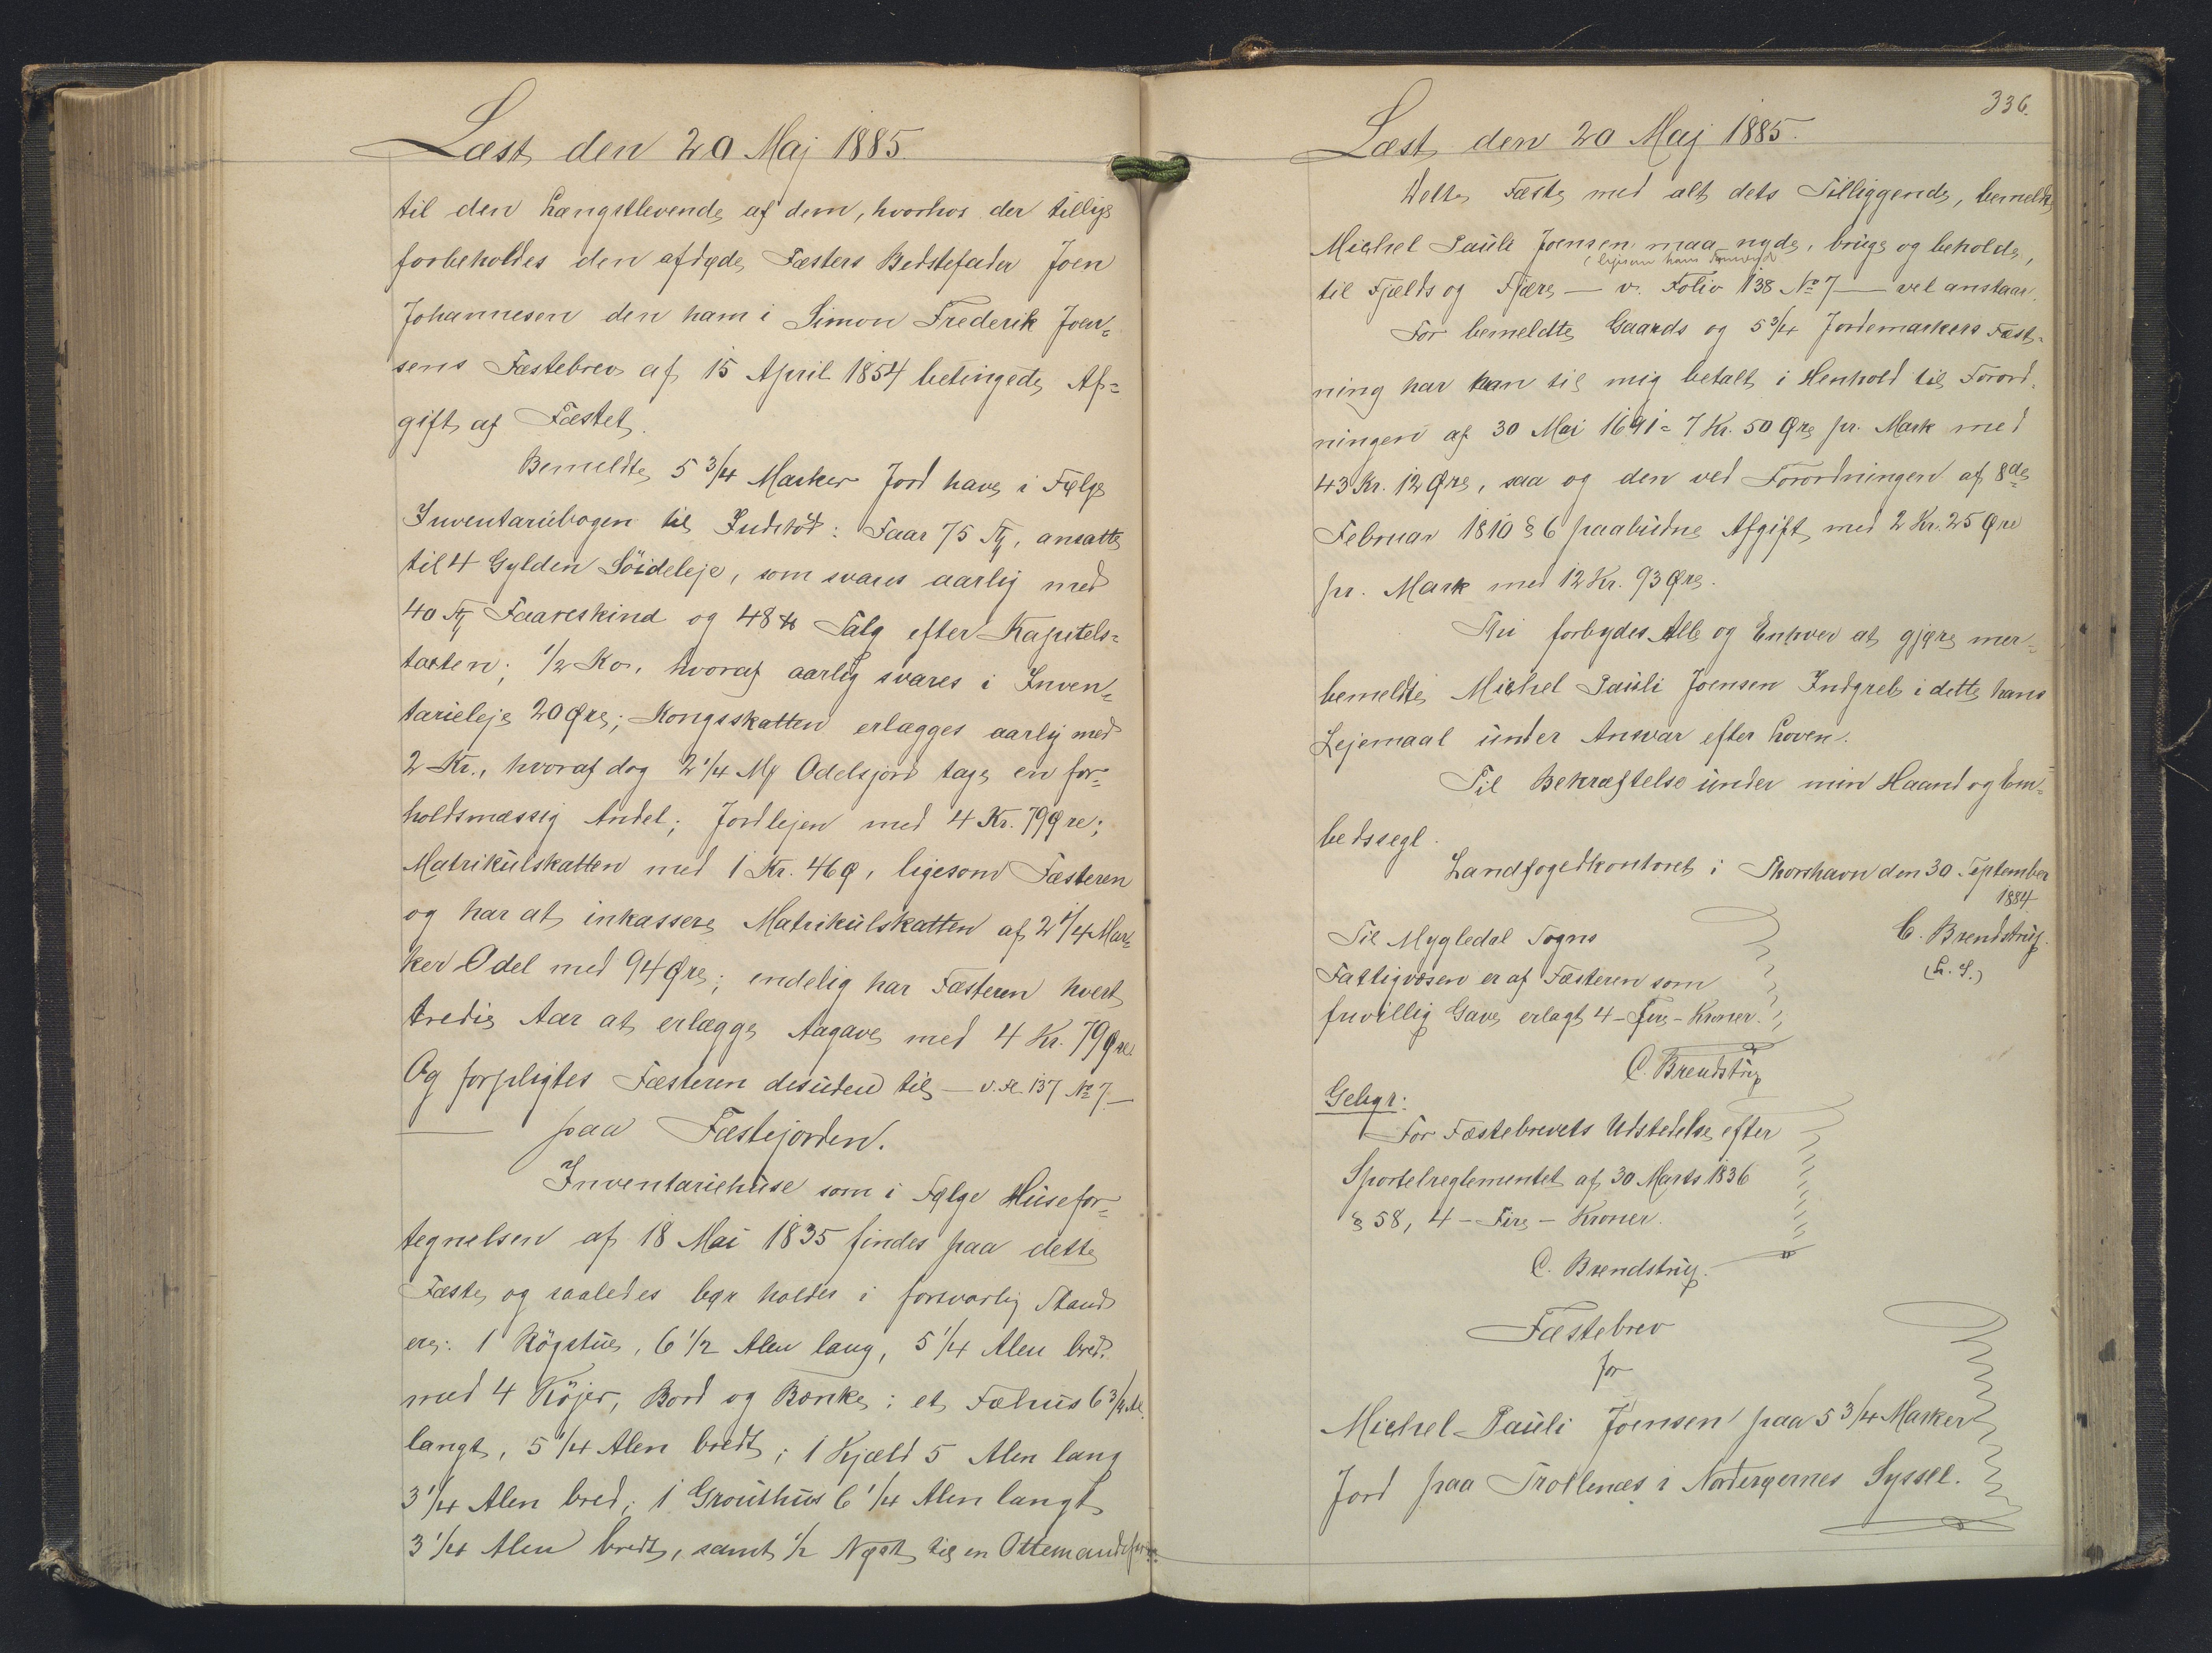 Læst den 20 Maj 1885.
til den Længstlevende af dem, hvorhos der tillige
forbeholdes den afdøde Fæsters Bedstefader Joen
Johannesen den ham i Simon Frederik Joen=
sens Fæstebrev af 15 April 1854 betingede Af=
gift af Fæstet.
Bemeldte 5 3/4 Marker Jord have i Følge
Inventariebogen til Indstød: Faar 75 St, ansatte
til 4 Gylden Söideleje, som svares aarlig med
40 St Faareskind og 48 ℔ Talg efter Kapitels=
taxten; 1/2 Ko, hvoraf aarlig svares i Inven=
tarieleje 20 Øre; Kongsskatten erlægges aarlig med
2 Kr., hvoraf dog 2 1/4 Mk Odelsjord tage en for=
holdsmæssig Andel; Jordlejen med 4 Kr. 79 Øre;
Matrikulskatten med 1 Kr. 46 Ø, ligesom Fæsteren
og har at inkassere Matrikulskatten af 2 1/4 Mar=
ker Odel med 94 Øre; endelig har Fæsteren hvert
tredie Aar at erlægge Aagave med 4 Kr. 79 Øre.
Og forpligtes Fæsteren desuden til — v. Fl. 137 No 7 —
— paa Fæstejorden.
Inventariehuse som i Følge Husefor=
tegnelsen af 18 Mai 1835 findes paa dette
Fæste og saaledes bør holdes i forsvarlig Stand
ere: 1 Rögstue, 6 1/2 Alen lang, 5 1/4 Alen bred.
med 4 Köjer, Bord og Bænke; et Fæhus 6 3/4 Al.
langt, 5 1/4 Alen bredt; 1 Hjæld 5 Alen lang
3 1/4 Alen bred; 1 Grouthus 6 1/4 Alen langt
3 1/4 Alen bredt, samt 1/2 Nøst til en Ottemandsfar=
336.
Læst den 20 Maj 1885.
Dette Fæste med alt dets Tilliggende, bemeldte
Michel Pauli Joensen maa nyde, bruge og beholde,
(ligesom hans
til Fjælds og Fjære — v. Folio 138 No 7 — vel anstaar.
For bemeldte Gaards og 5 3/4 Jordemarkers Fæst=
ning har han til mig betalt i Henhold til Forord=
ningen af 30 Mai 1691 = 7 Kr. 50 Øre pr. Mark med
43 Kr. 12 Øre, saa og den ved Forordningen af 8de
Februar 1810 § 6 paabudne Afgift med 2 Kr. 25 Øre
pr. Mark med 12 Kr. 93 Øre.
Thi forbydes Alle og Enhver at gjøre mer=
bemeldte Michel Pauli Joensen Indgreb i dette hans
Lejemaal under Ansvar efter Loven.
Til Bekræftelse under min Haand og Em=
bedssegl.
Landfogedkontoret i Thorshavn den 30 September
1884
C. Brendstrup.
(L. S.)
Til Mygledal Sogns
Fattigvæsen er af Fæsteren som
frivillig Gave erlagt 4 – Fire – Kroner.
C. Brendstrup
Gebyr:
For Fæstebrevets Udstedelse efter
Sportelreglementet af 30 Marts 1836
§ 58, 4 – Fire – Kroner.
C. Brendstrup.
Fæstebrev
for
Michel Pauli Joensen paa 5 3/4 Marker
Jord paa Trollenæs i Norderøernes Syssel.